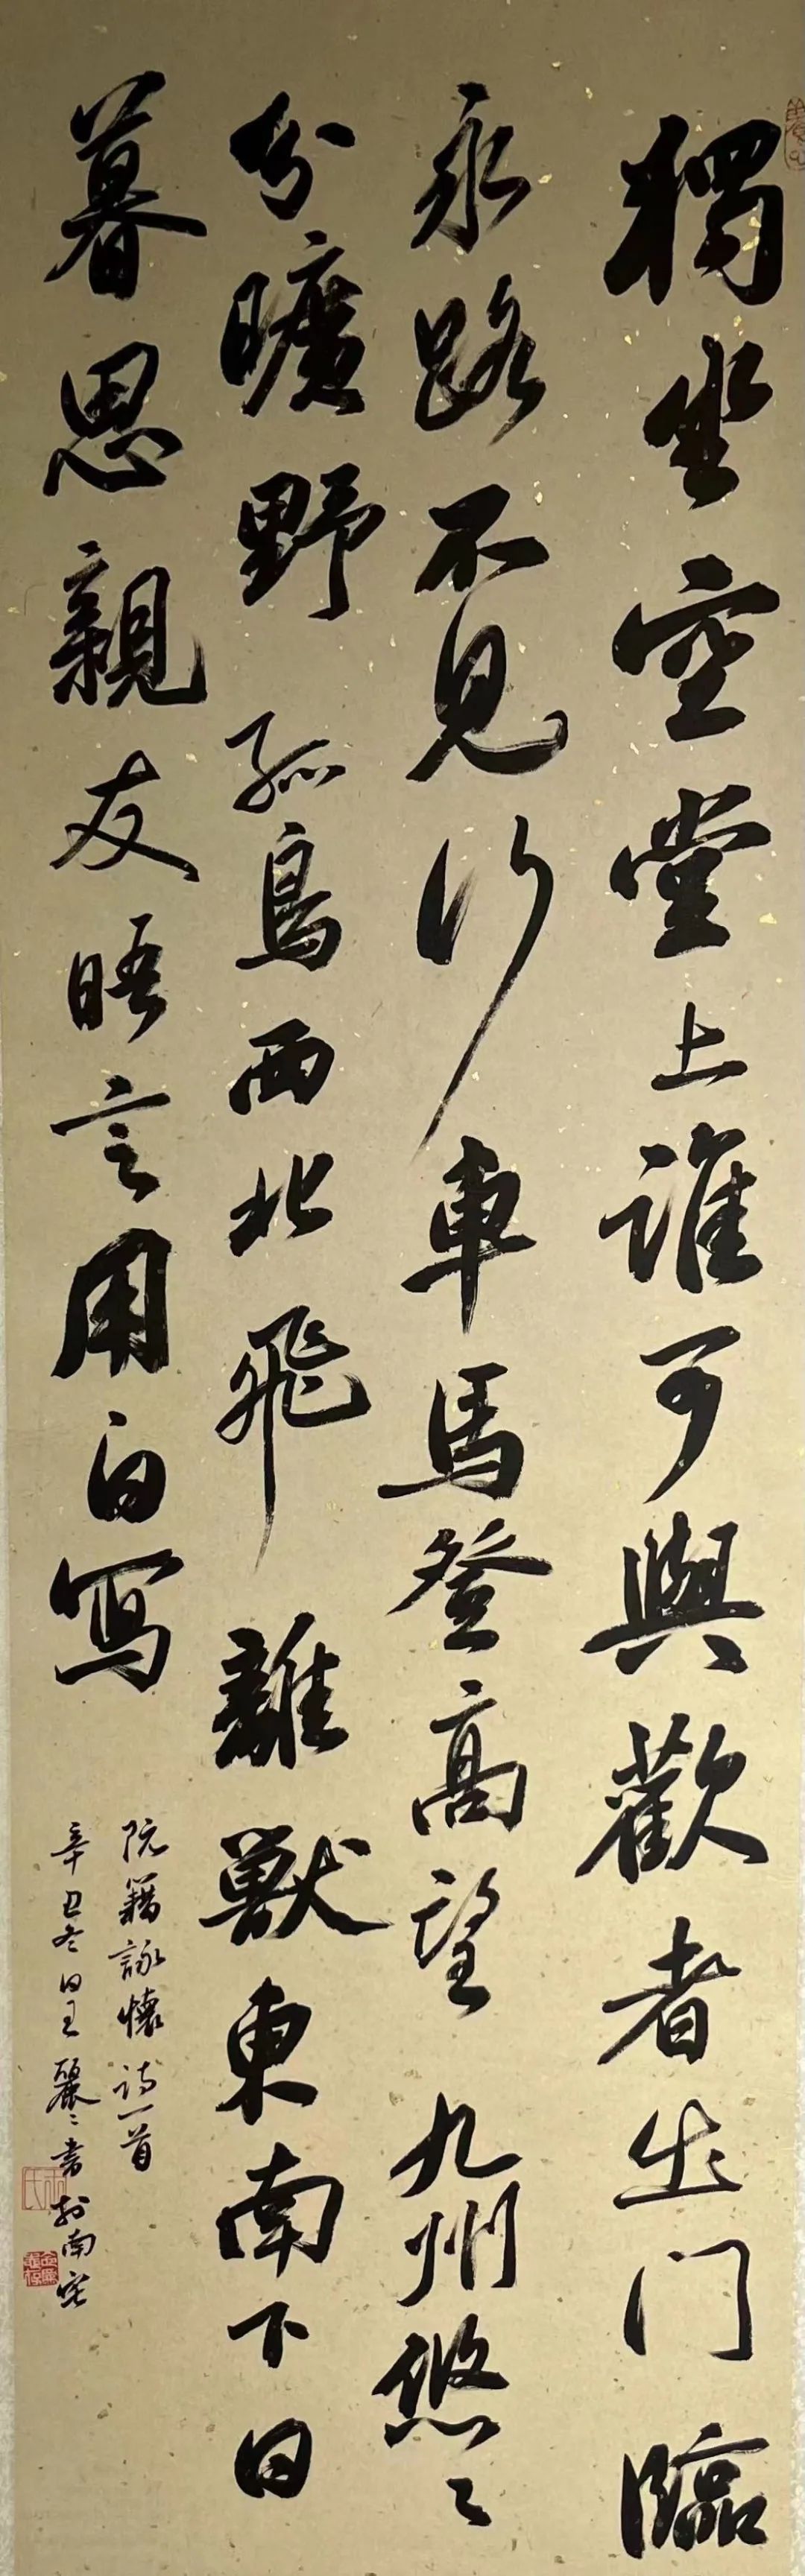 獨坐空堂上誰可與歡者出門臨
永路不見行車馬登高望九州悠〻
分曠野孤鳥西北飛離獸東南下日
暮思親友晤言用自寫
阮籍詠懷詩一首
辛丑冬日王麗〻書於南窗